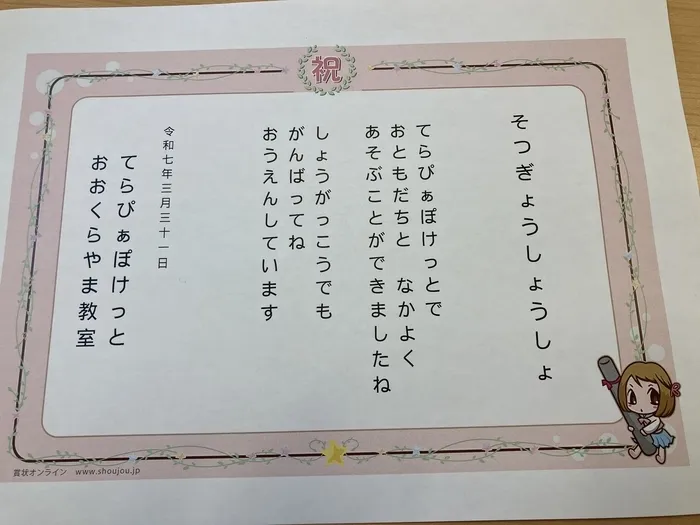 祝
そつぎょうしょうしょ
てらぴぁぽけっとで
おともだちと なかよく
あそぶことができましたね
しょうがっこうでも
がんばってね
おうえんしています
令和七年三月三十一日
てらぴぁぽけっと
おおくらやま教室
賞状オンライン www.shoujou.jp